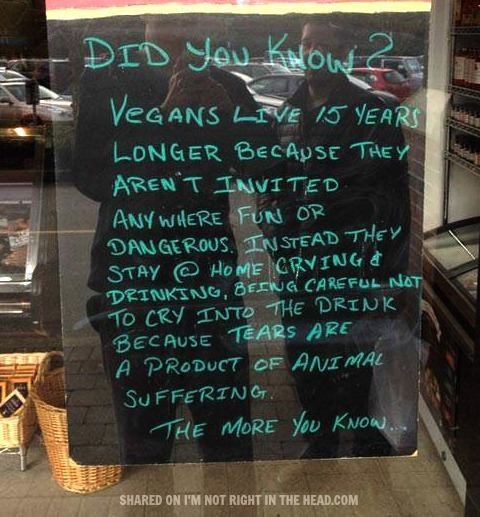 DID YOU KNOW?
VEGANS LIVE 15 YEARS
LONGER BECAUSE THEY
AREN'T INVITED
ANYWHERE FUN OR
DANGEROUS. INSTEAD THEY
STAY @ HOME CRYING &
DRINKING, BEING CAREFUL NOT
TO CRY INTO THE DRINK
BECAUSE TEARS ARE
A PRODUCT OF ANIMAL
SUFFERING.
THE MORE YOU KNOW...
SHARED ON I'M NOT RIGHT IN THE HEAD.COM